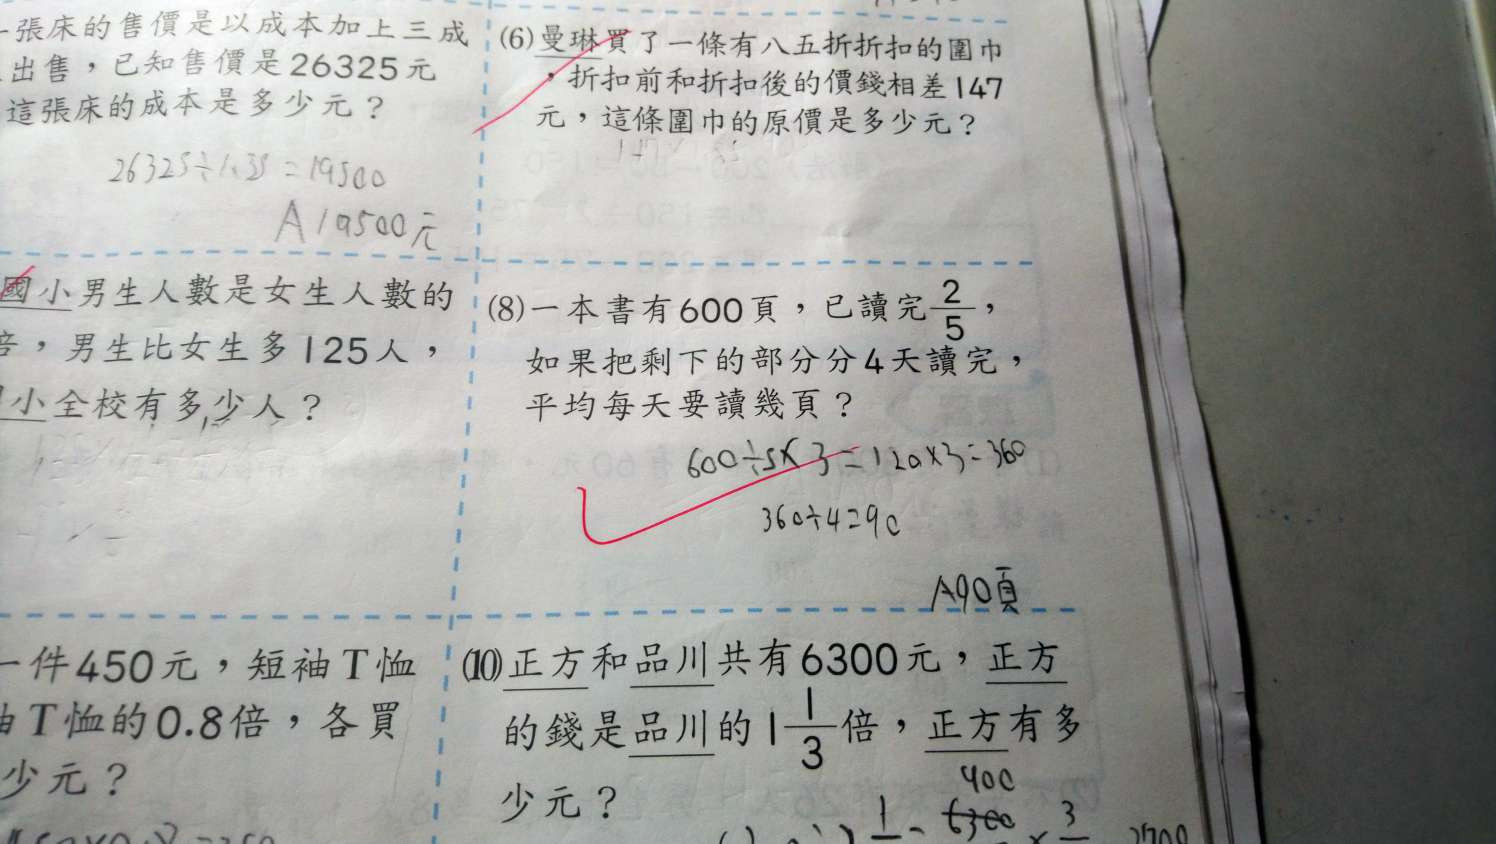 一張床的售價是以成本加上三成
出售，已知售價是26325元
這張床的成本是多少元？
26325÷1.35=19500
A19500元
(6)曼琳買了一條有八五折折扣的圍巾
，折扣前和折扣後的價錢相差147
元，這條圍巾的原價是多少元？
國小男生人數是女生人數的
倍，男生比女生多125人，
小全校有多少人？
(8)一本書有600頁，已讀完2/5，
如果把剩下的部分分4天讀完，
平均每天要讀幾頁？
600÷5×3=120×3=360
360÷4=90
A90頁
一件450元，短袖T恤
T恤的0.8倍，各買
少元？
(10)正方和品川共有6300元，正方
的錢是品川的1 1/3倍，正方有多
少元？